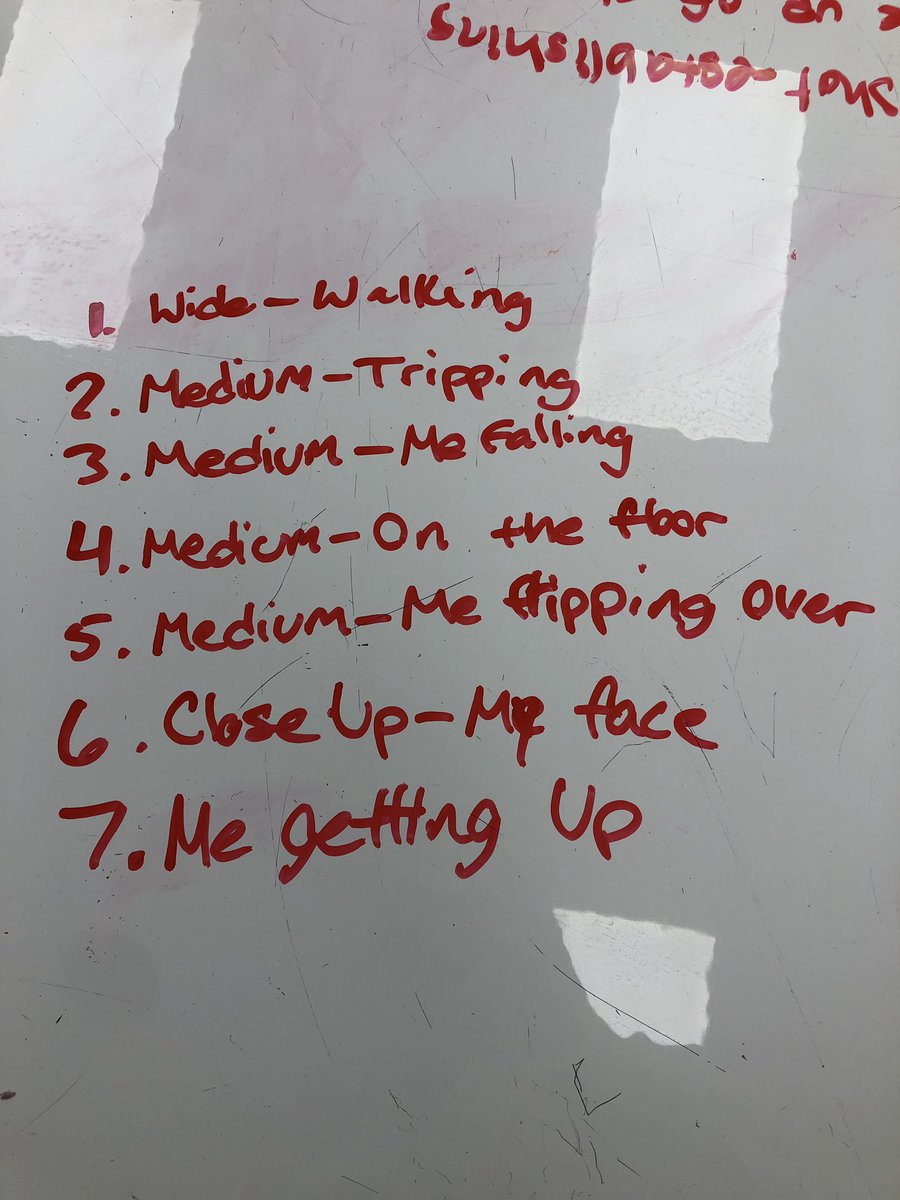 1. Wide - Walking
2. Medium - Tripping
3. Medium - Me Falling
4. Medium - On the floor
5. Medium - Me flipping over
6. Close Up - My face
7. Me getting Up
shot establishing